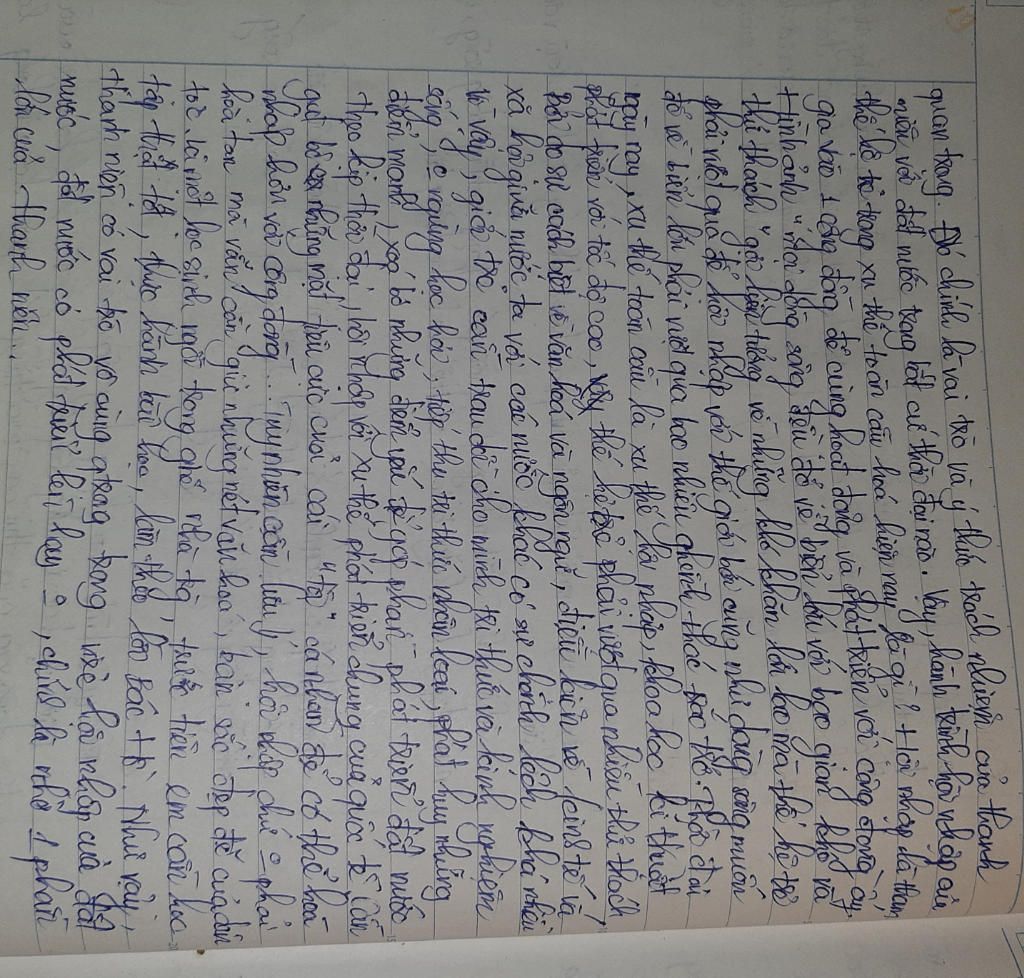 quan trọng. Đó chính là vai trò và ý thức trách nhiệm của thanh
niên với đất nước trong bất cứ thời đại nào. Vậy, hành trình hội nhập của
thế hệ trẻ trong xu thế toàn cầu hoá hiện nay là gì? Hội nhập là tham
gia vào 1 cộng đồng để cùng hoạt động và phát triển với cộng đồng ấy.
Hình ảnh "mọi dòng sông đều đổ về biển lớn với bao gian khổ và
thử thách" gợi liên tưởng về những khó khăn lớn lao mà thế hệ trẻ
phải vượt qua để hội nhập với thế giới bởi cũng như dòng sông muốn
đổ về biển lớn phải vượt qua bao nhiêu ghềnh thác trở. Thời đại
ngày nay, xu thế toàn cầu là xu thế hội nhập, khoa học kĩ thuật
phát triển với tốc độ cao, thế hệ trẻ phải vượt qua nhiều thử thách
bởi do sự cách biệt về văn hoá và ngôn ngữ, điều kiện về kinh tế và
xã hội giữa nước ta với các nước khác có sự chênh lệch khá nhiều
vì vậy, giới trẻ cần trau dồi cho mình tri thức và kinh nghiệm
sống, o ngừng học hỏi, tiếp thu tri thức nhân loại, phát huy những
điểm mạnh, xoá bỏ những điểm yếu để góp phần phát triển đất nước
theo kịp thời đại, hội nhập với xu thế phát triển chung của quốc tế. Cần
gạt bỏ những mặt tiêu cực của cái "tôi" cá nhân để có thể hoà
nhập hơn với cộng đồng... Tuy nhiên cần lưu ý, hội nhập chứ o phải
hoà tan mà vẫn cần giữ những nét văn hoá, bản sắc tốt đẹp của dân
tộc. Là một học sinh ngồi trong ghế nhà trường, trước tiên em cần học
tập thật tốt, thực hành tốt hơn, làm theo lời Bác Hồ. Như vậy,
thanh niên có vai trò vô cùng quan trọng trong việc hội nhập của đất
nước, đất nước có phát triển lên hay o, chính là nhờ 1 phần
lớn của thanh niên.